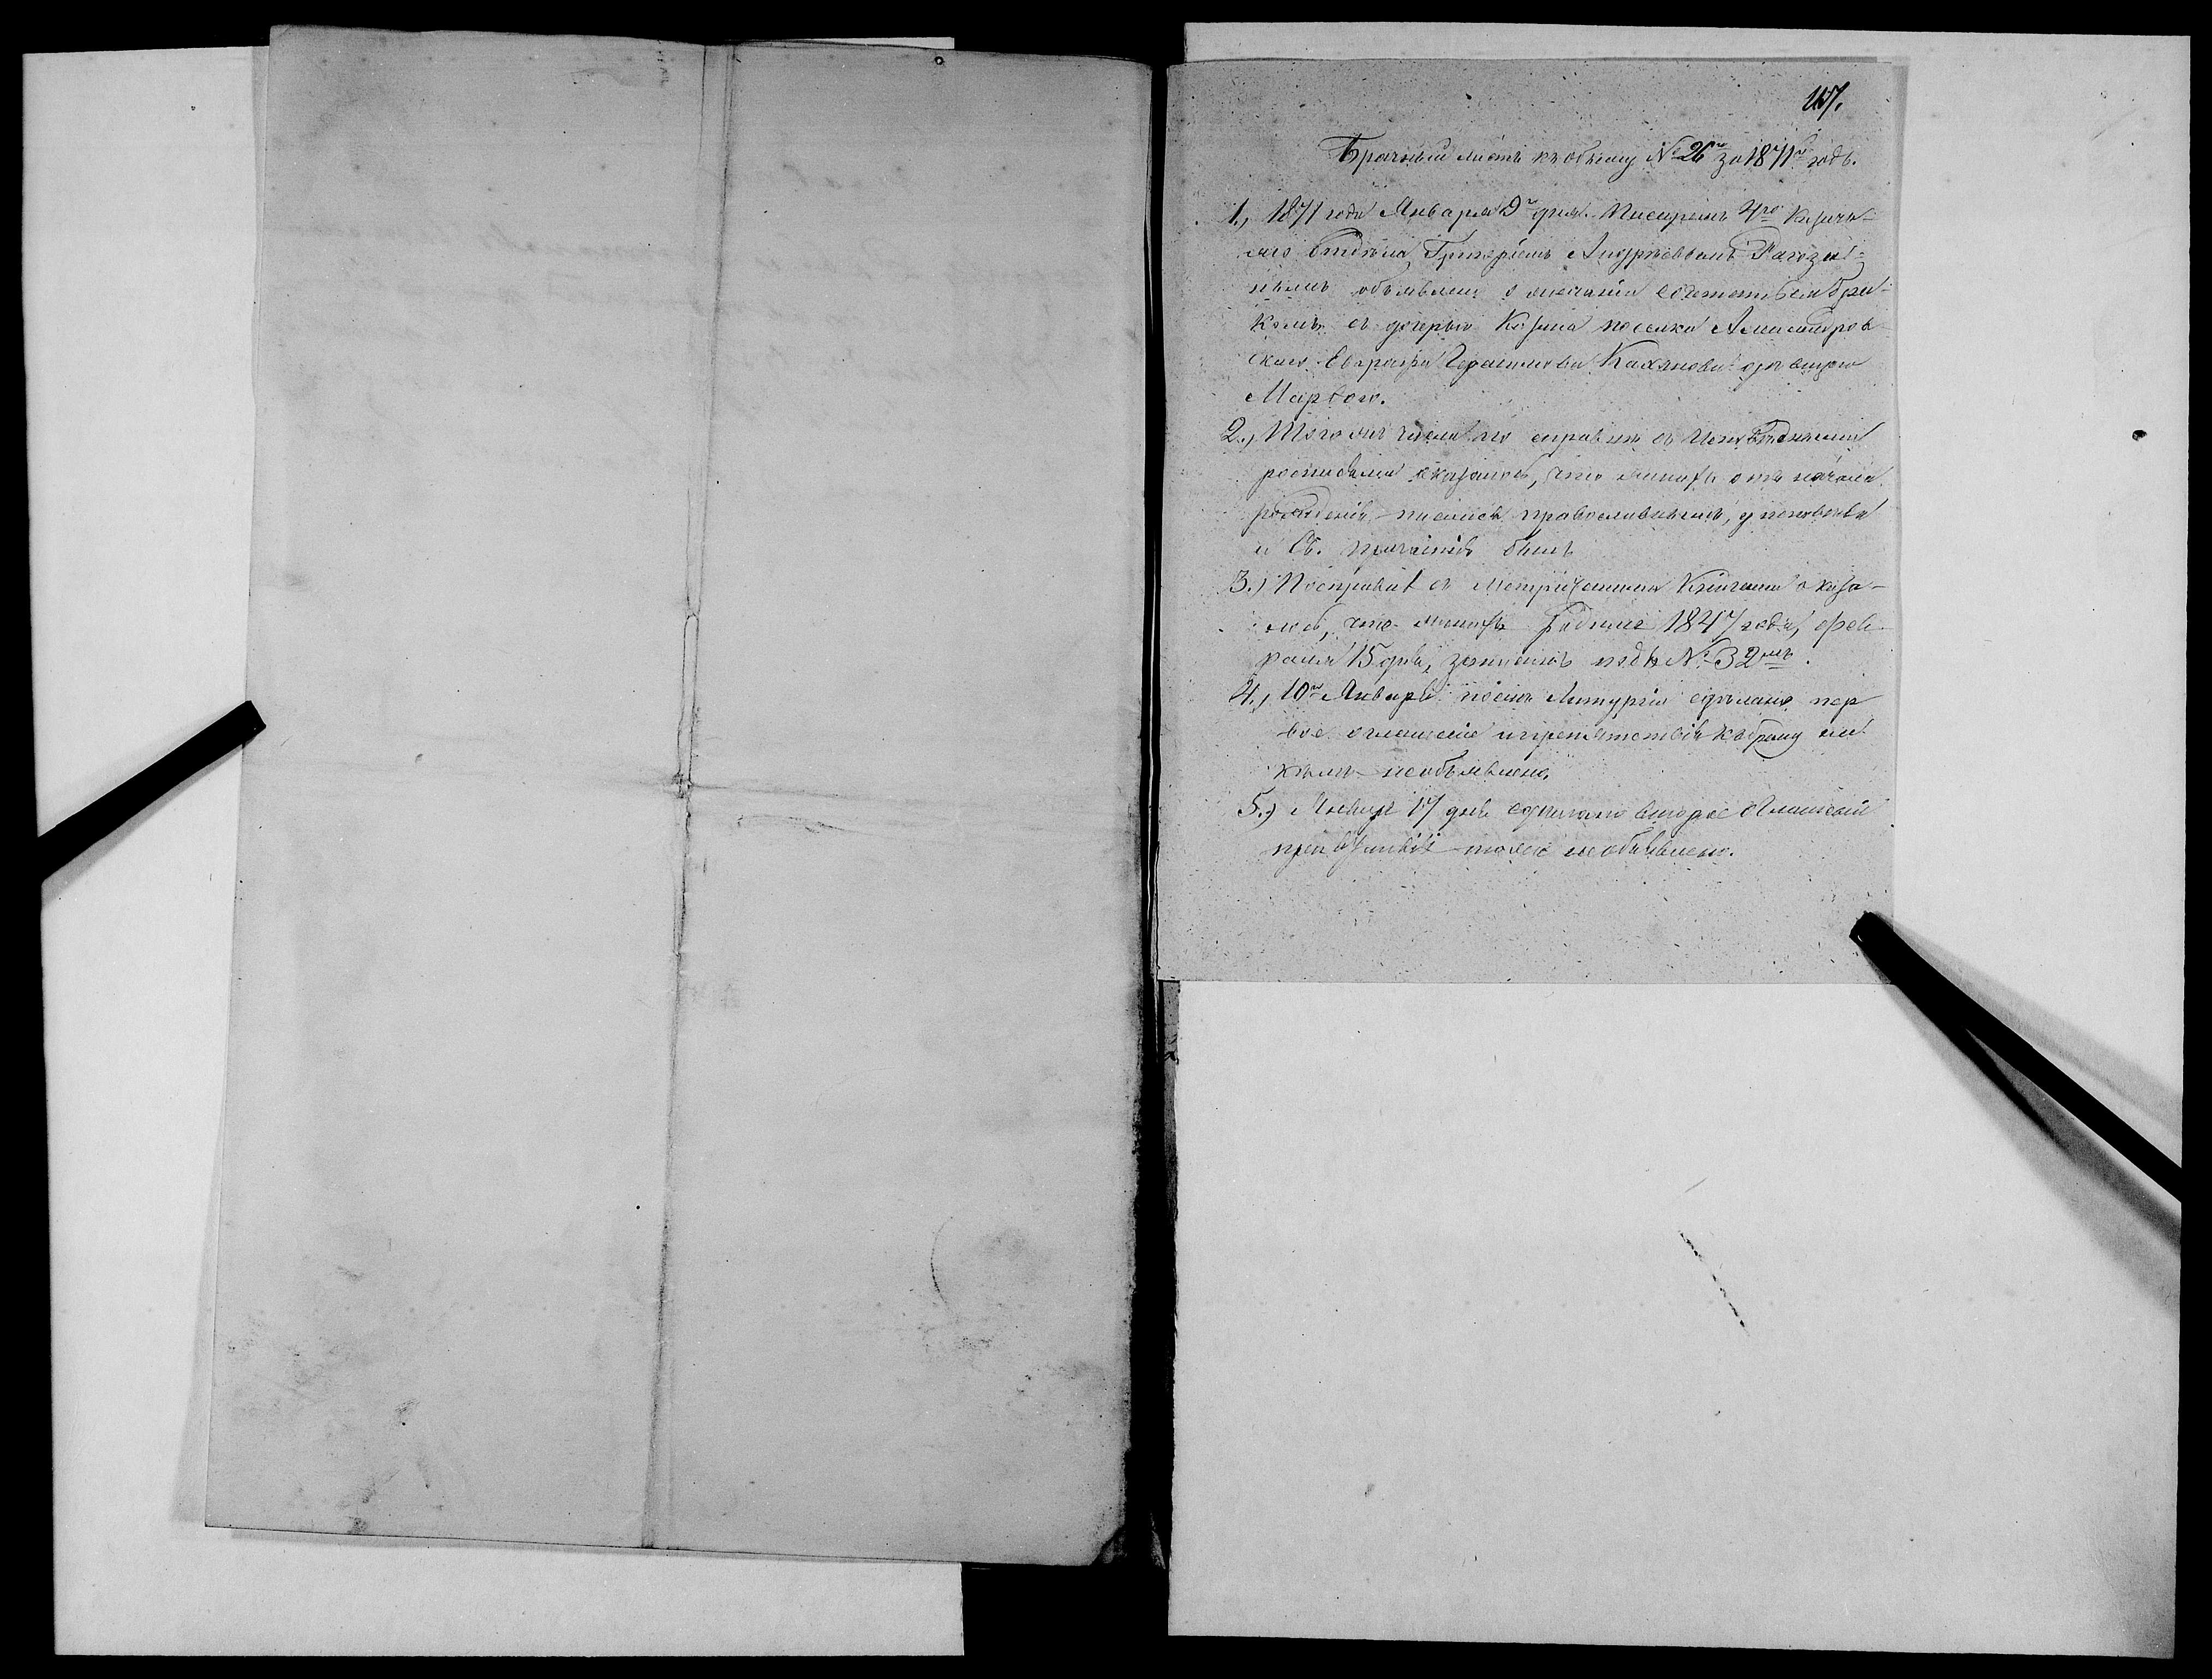 Брачный листъ къ обыску № 26й за 1871й годъ.
1., 1871 года Января 9го дня. Писаремъ 4го Казачь-
яго Отдѣла, Григоріемъ Андреевымъ Рагози-
нымъ объявлено о желаніи сочетаться бра-
комъ съ дочерью Казака поселка
скаго Евграфа Герасимова дѣвицею
Марѳою.
2., Того же числа по справкѣ съ Исповѣдными
росписями оказалось, что женихъ отъ начала
рожденія писался православнымъ, у исповѣди
и Св. причастія былъ
3.) По справкѣ съ Метрическими Книгами оказа-
лось, что женихъ родился 1847 года, Фев-
раля 15 дня, записанъ подъ № 32мъ.
4., 10го Января послѣ Литургіи сдѣлано пер
вое оглашеніе и препятствій къ браку ни
кѣмъ не объявлено,
5.) Января 17 дня сдѣлано второе оглашеніе
препятствій тоже не объявлено.